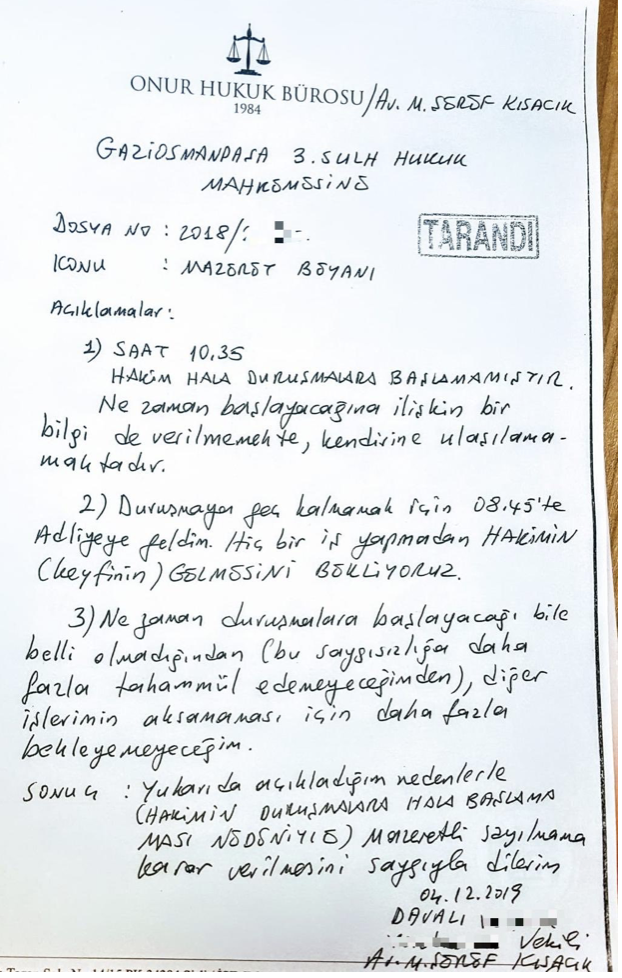 ONUR HUKUK BÜROSU/Av. M. ŞEREF KISACIK
1984
GAZİOSMANPAŞA 3. SULH HUKUK
MAHKEMESİNE
DOSYA NO : 2018/
TARANDI
KONU : MAZERET BEYANI
Açıklamalar :
1) SAAT 10.35
HAKİM HALA DURUŞMALARA BAŞLAMAMIŞTIR.
Ne zaman başlayacağına ilişkin bir
bilgi de verilmemekte, kendirine ulaşılama-
maktadır.
2) Duruşmaya geç kalmamak için 08.45'te
Adliyeye geldim. Hiç bir iş yapmadan HAKİMİN
(keyfinin) GELMESİNİ BEKLİYORUZ.
3) Ne zaman duruşmalara başlayacağı bile
belli olmadığından (bu saygısızlığa daha
fazla tahammül edemeyeceğimden), diğer
işlerimin aksamaması için daha fazla
bekleyemeyeceğim.
SONUÇ : Yukarıda açıkladığım nedenlerle
(HAKİMİN DURUŞMALARA HALA BAŞLAMA
MASI NEDENİYLE) Mazeretli sayılmama
karar verilmesini saygıyla dilerim
04.12.2019
DAVALI
Vekili
Av. M. ŞEREF KISACIK